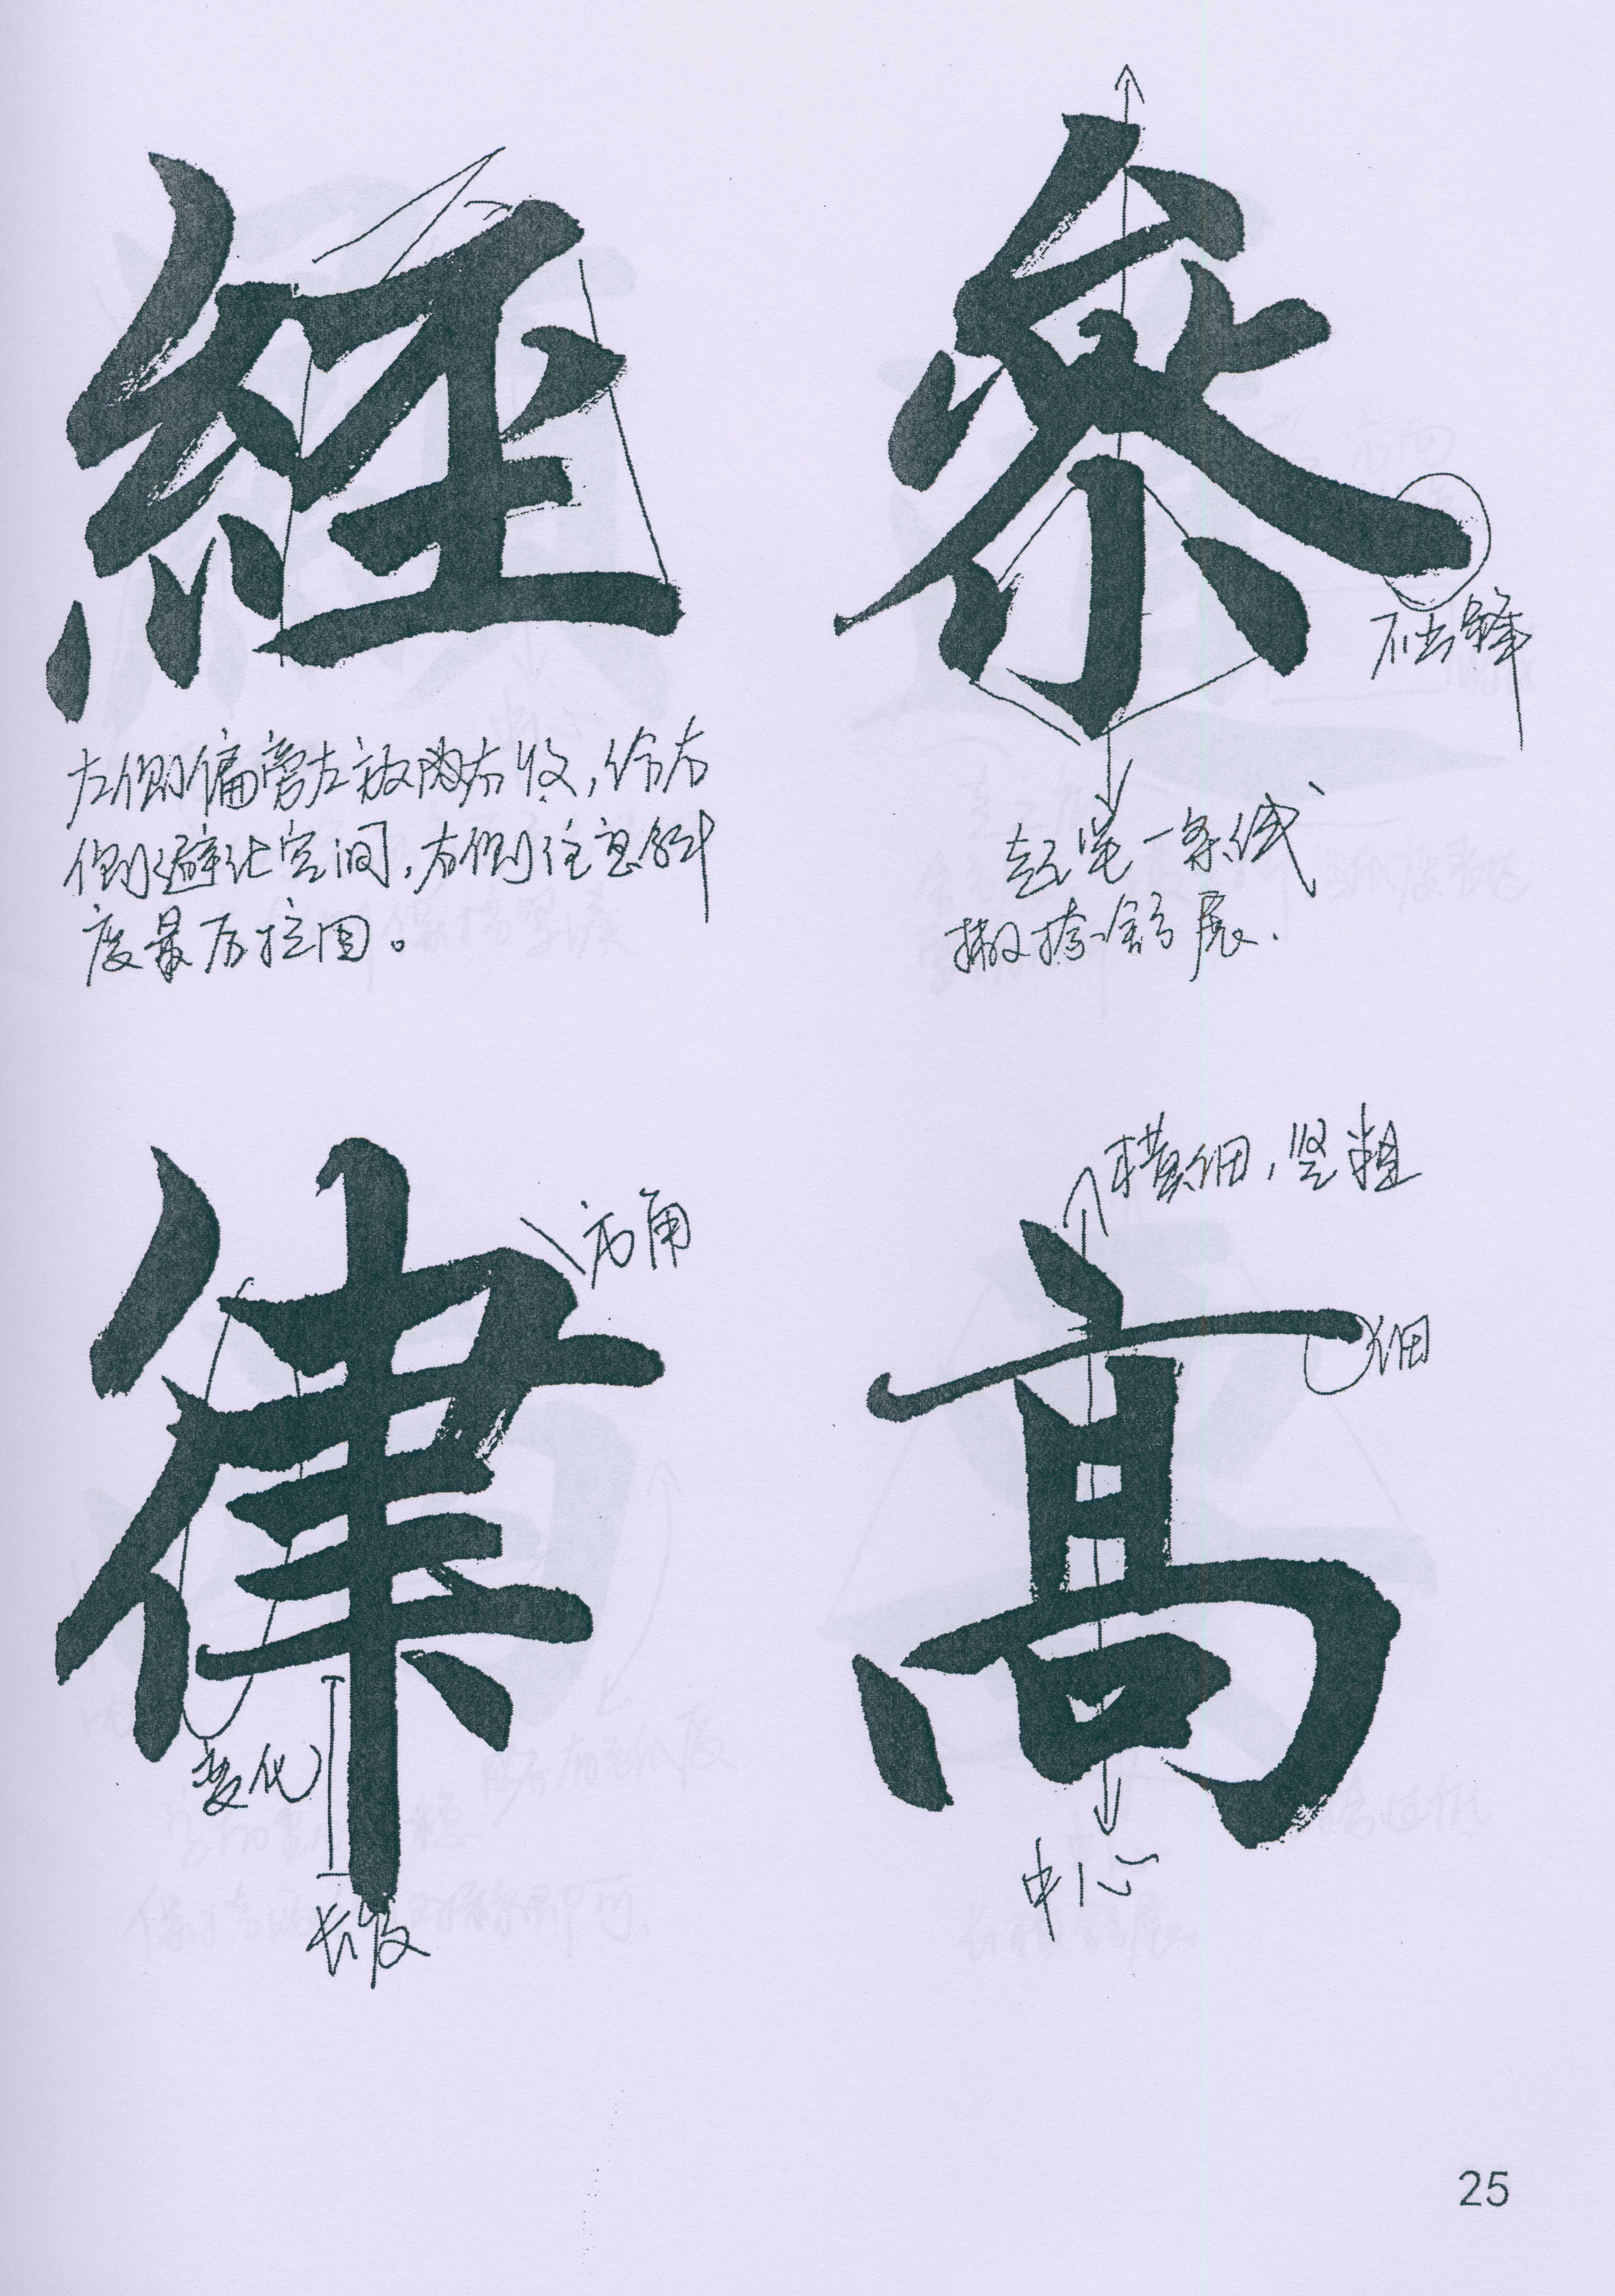 経
左侧偏旁左放内右收，给右
侧避让空间，右侧注意斜
度最后拉回。
参
不出锋
起笔一条线
撇捺舒展.
律
方角
变化
长度
高
横细，竖粗
细
中心
25